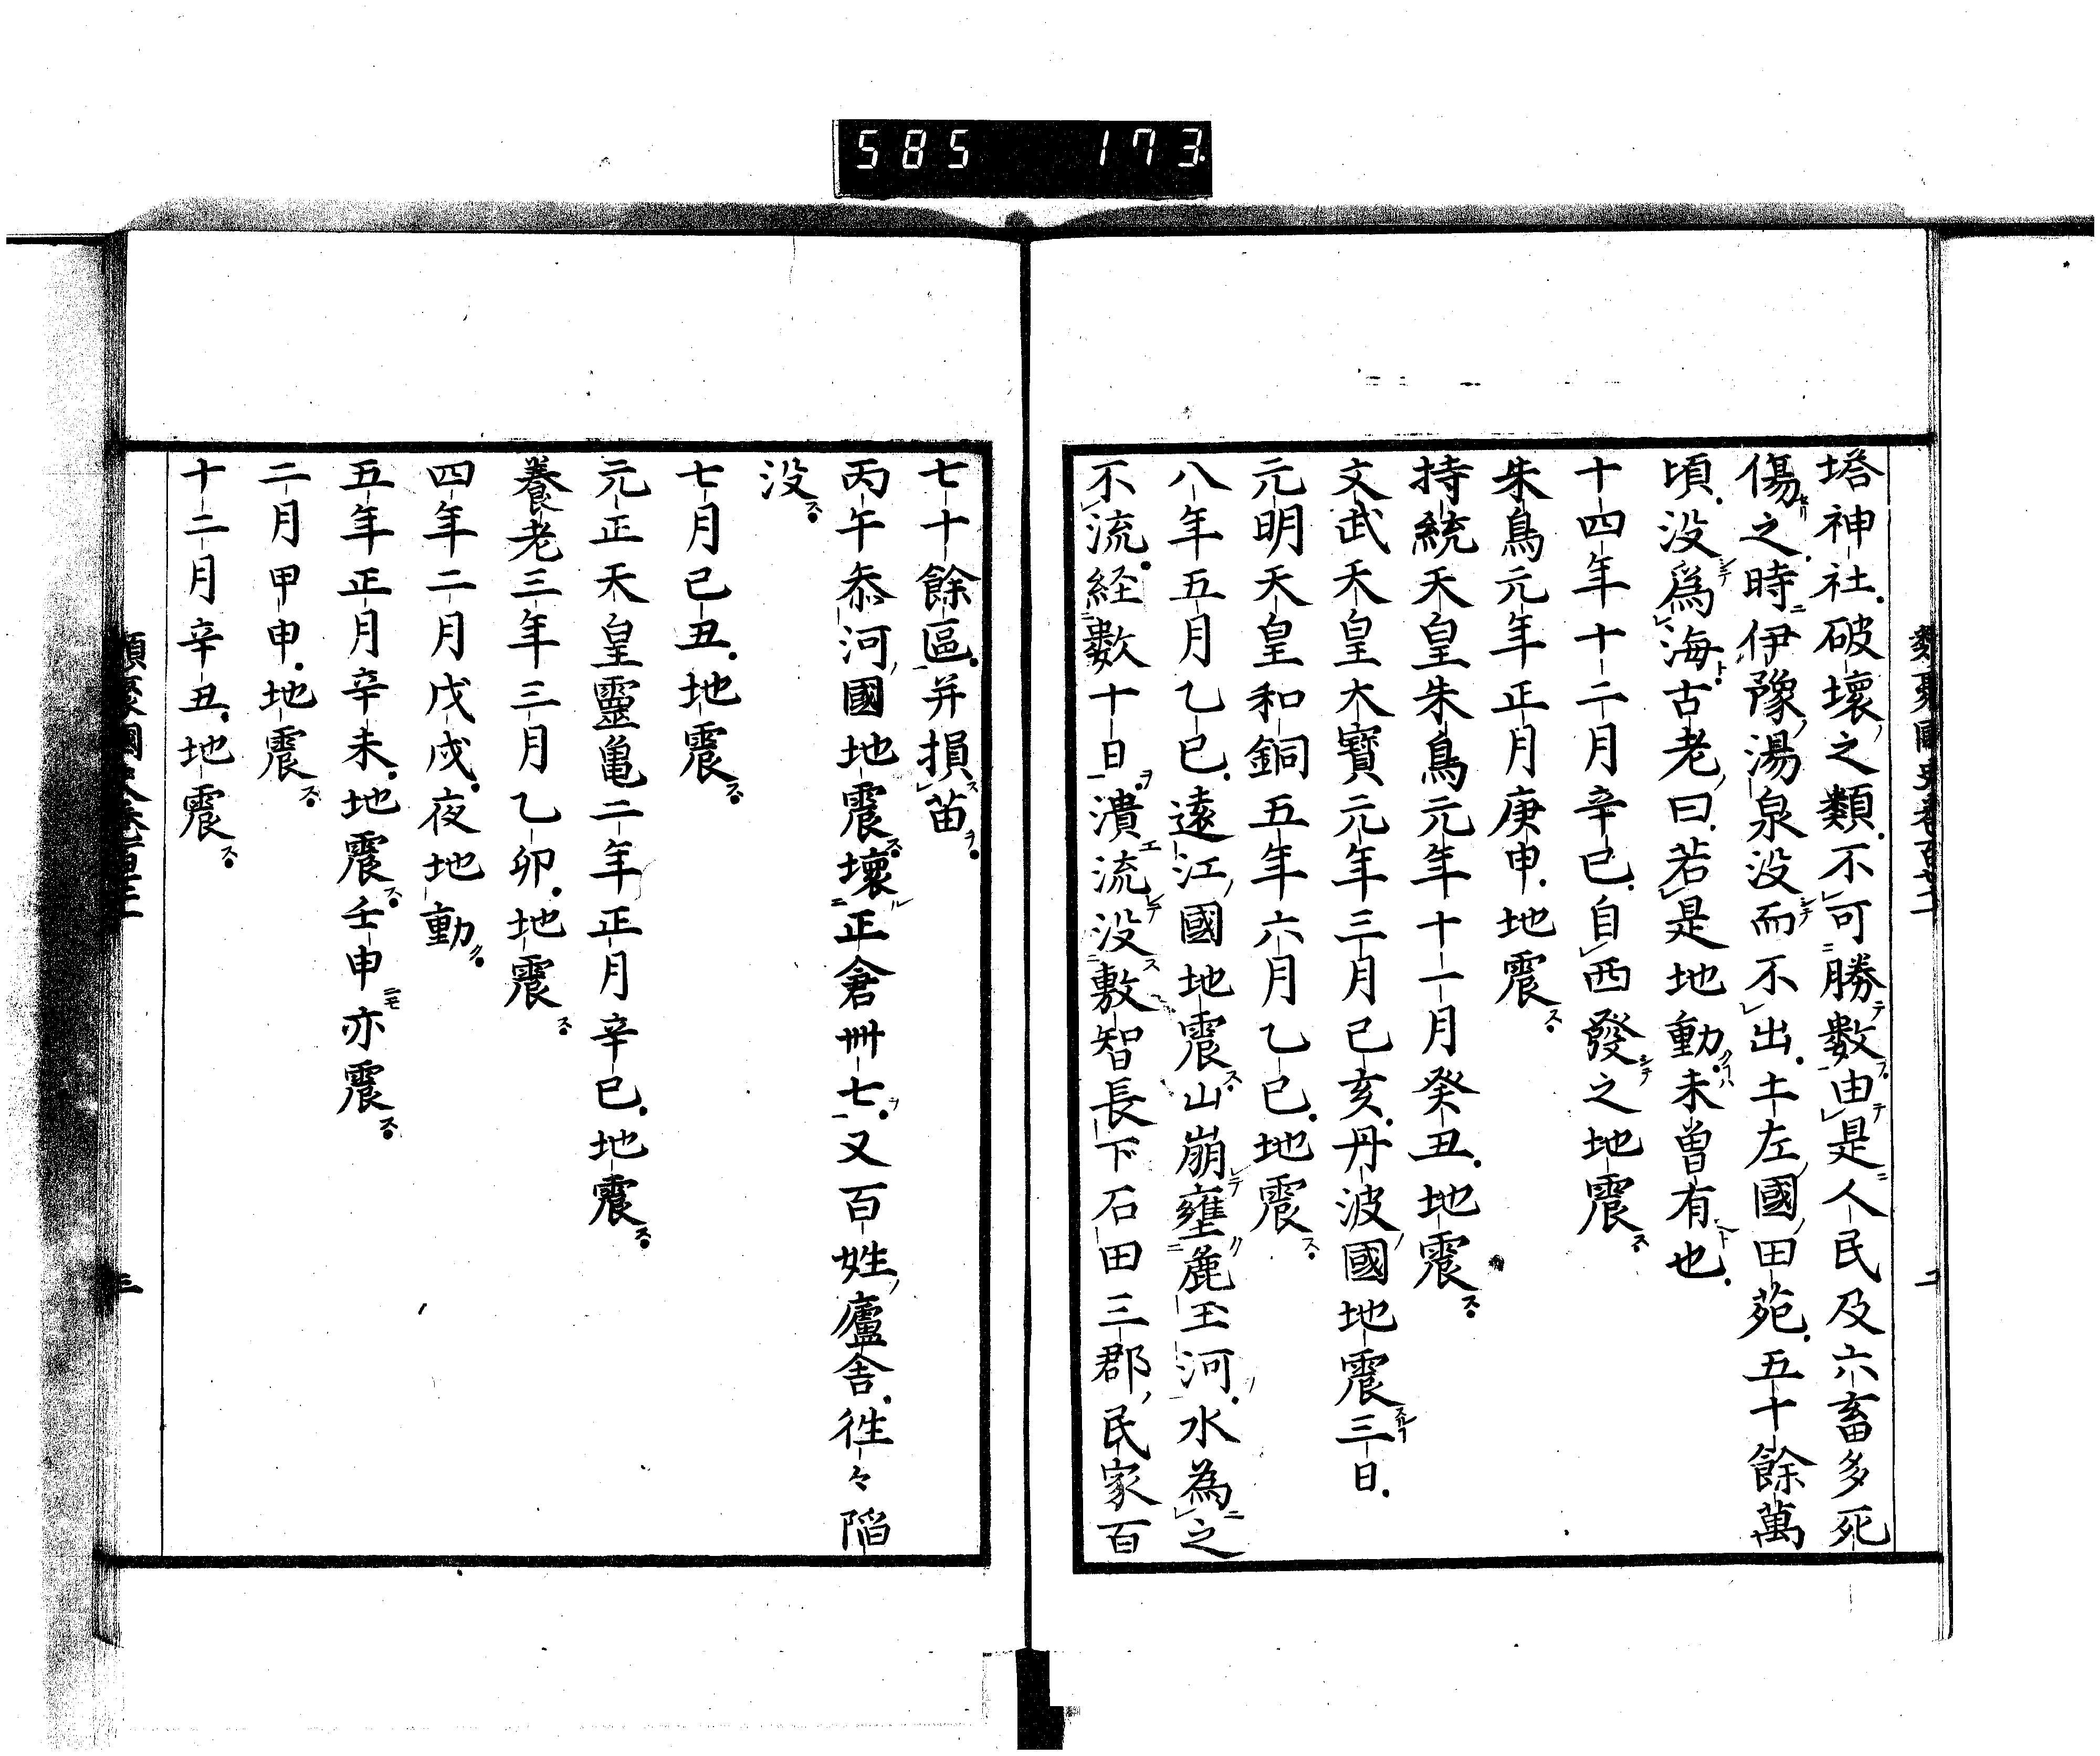 585 173
塔神社破壞之類不可勝數由是人民及六畜多死
傷之時伊豫湯泉没而不出土左國田苑五十餘萬
頃没爲海古老曰若是地動未曽有也
十四年十二月辛巳自西發之地震
朱鳥元年正月庚申地震
持統天皇朱鳥元年十一月癸丑地震
文武天皇大寶元年三月己亥丹波國地震三日
元明天皇和銅五年六月乙巳地震
八年五月乙巳遠江國地震山崩壅麁玉河水為之
不流経數十日潰流没敷智長下石田三郡民家百
七十餘區并損苗
丙午叅河國地震壞正倉卌七又百姓廬舎徃々陷
没
七月己丑地震
元正天皇靈亀二年正月辛巳地震
養老三年三月乙卯地震
四年二月戊戌夜地動
五年正月辛未地震壬申亦震
二月甲申地震
十二月辛丑地震
三